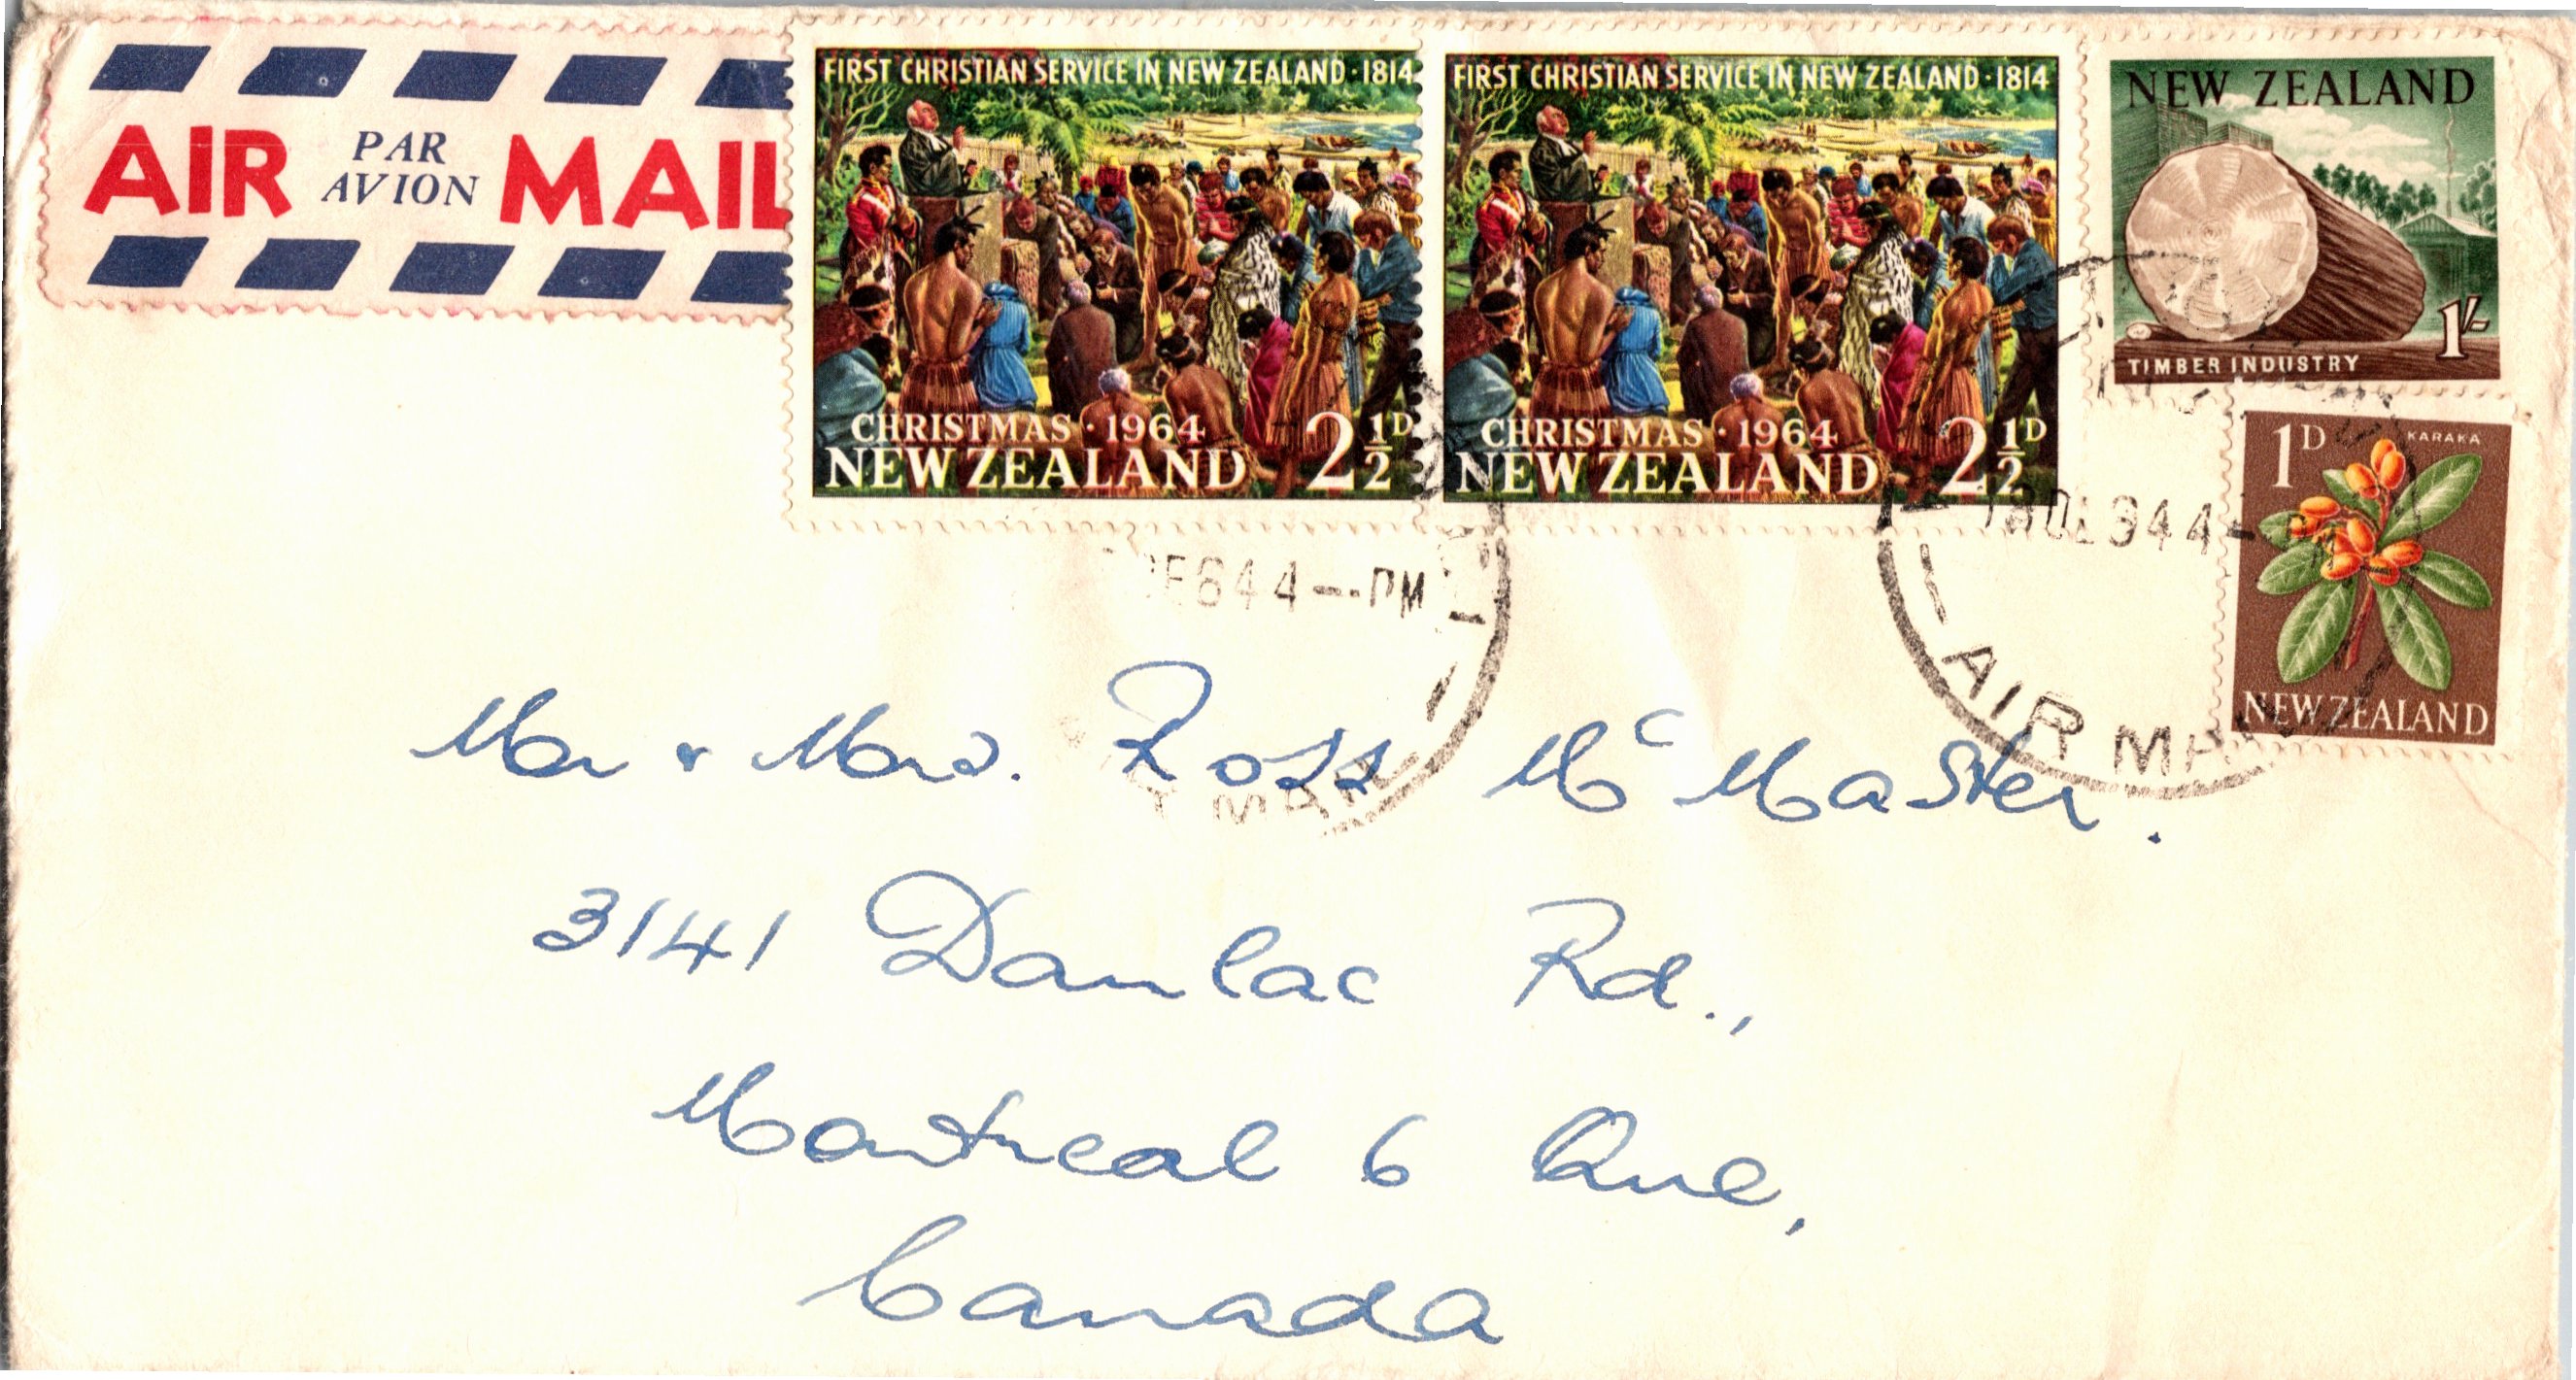 AIR PAR AVION MAIL
FIRST CHRISTIAN SERVICE IN NEW ZEALAND · 1814
CHRISTMAS · 1964
NEW ZEALAND 2½D
FIRST CHRISTIAN SERVICE IN NEW ZEALAND · 1814
CHRISTMAS · 1964
NEW ZEALAND 2½D
NEW ZEALAND
1/-
TIMBER INDUSTRY
1D KARAKA
NEW ZEALAND
644--PM
AIR MA
Mr & Mrs. Ross McMaster.
3141 Daulac Rd.,
Montreal 6 Que,
Canada